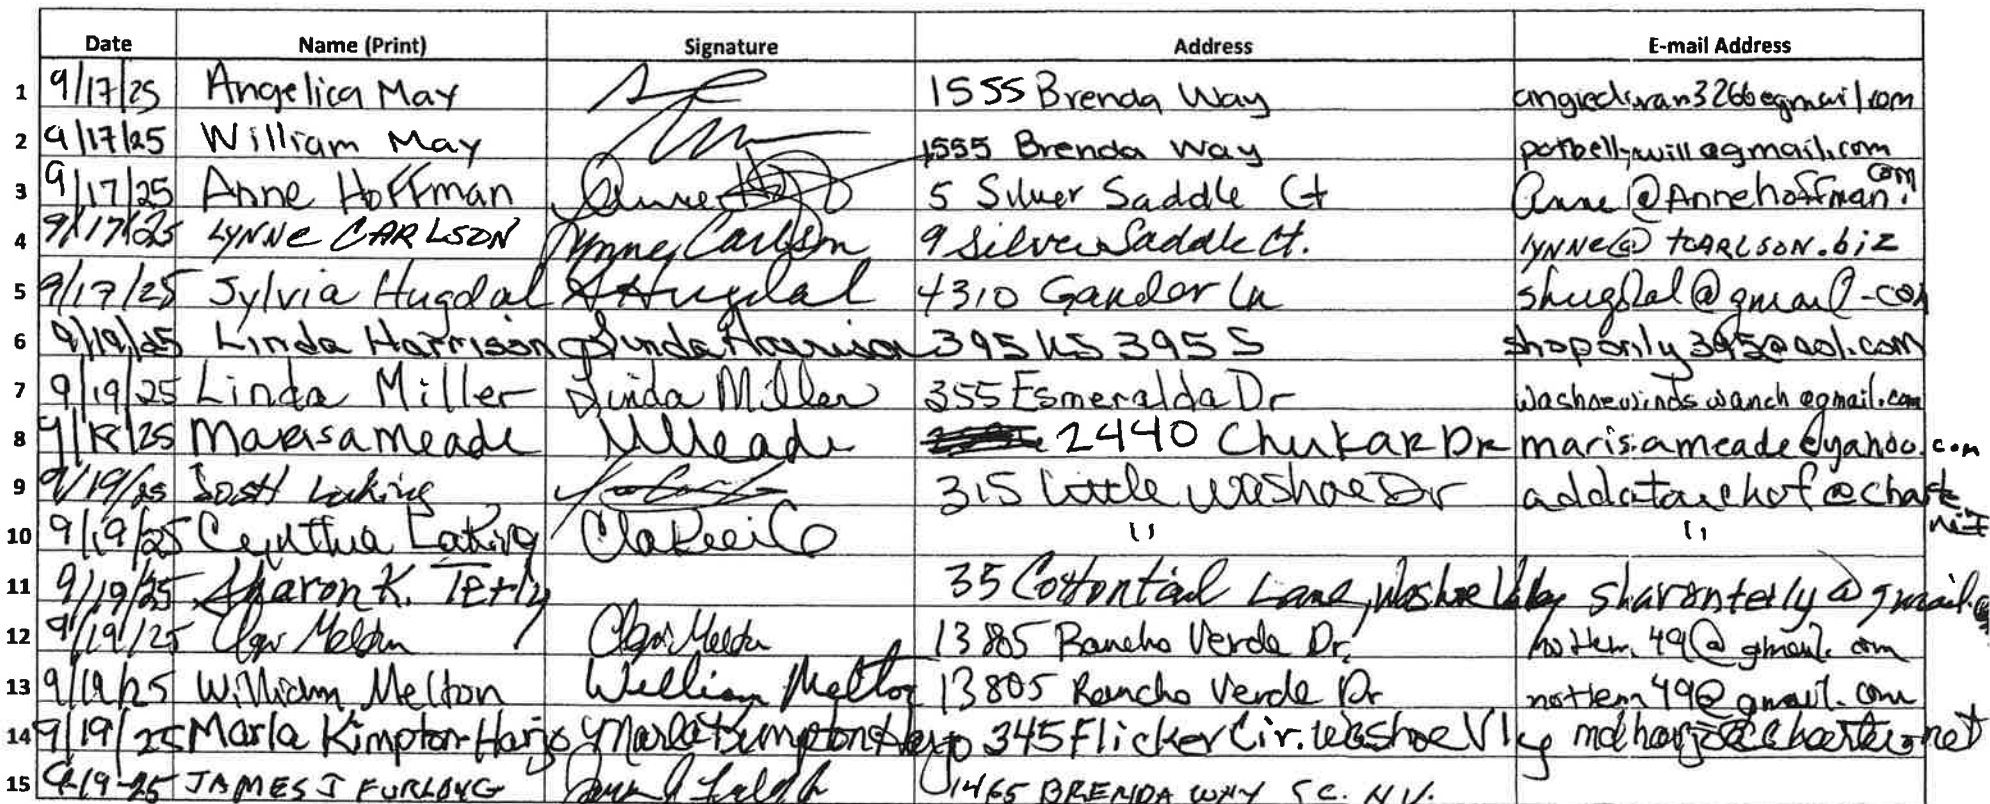 Date Name (Print) Signature Address E-mail Address
1 9/17/25 Angelica May 1555 Brenda Way
2 9/17/25 William May 1555 Brenda Way potbellywill@gmail.com
3 9/17/25 Anne Hoffman Anne H 5 Silver Saddle Ct Anne@Annehoffman.com
4 9/17/25 LYNNE CARLSON Lynne Carlson 9 Silver Saddle Ct. lYNNe@tCARLSON.biz
5 9/17/25 Sylvia Hugdal SHugdal 4310 Gander Ln shugdal@gmail.com
6 9/19/25 Linda Harrison Linda Harrison 395 US 395 S shoponly395@aol.com
7 9/19/25 Linda Miller Linda Miller 355 Esmeralda Dr
8 9/18/25 Marisa Meade MMeade 2440 Chukar Dr marisameade@yahoo.com
9 9/19/25 315 Little Washoe Dr
10 9/19/25 Cynthia Laking " "
11 9/19/25 Sharon K. Terly 35 Cottontail Lane, Washoe Valley sharonterly@gmail.
12 9/19/25 13805 Rancho Verde Dr. nottem49@gmail.com
13 9/19/25 William Melton William Melton 13805 Rancho Verde Dr nottem49@gmail.com
14 9/19/25 Marla Kimpton-Harjo Marla Kimpton Harjo 345 Flicker Cir. Washoe Vly mdharjo@charter.net
15 9-19-25 JAMES J FURLONG 1465 BRENDA WAY